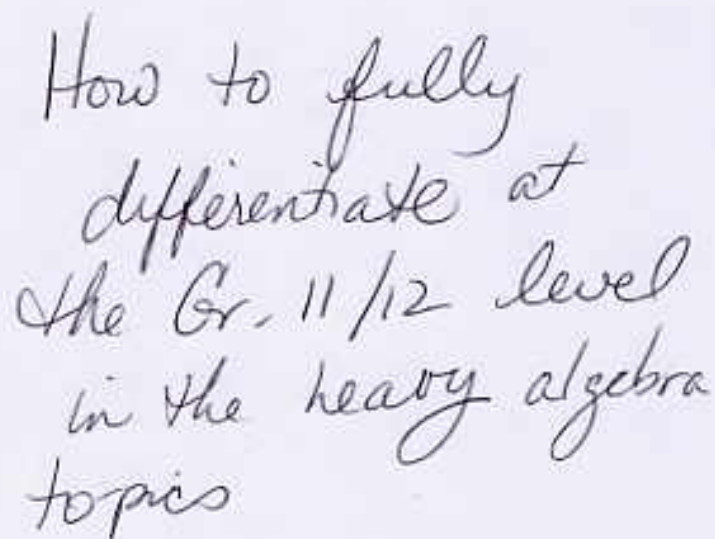 How to fully
differentiate at
the Gr. 11/12 level
in the heavy algebra
topics